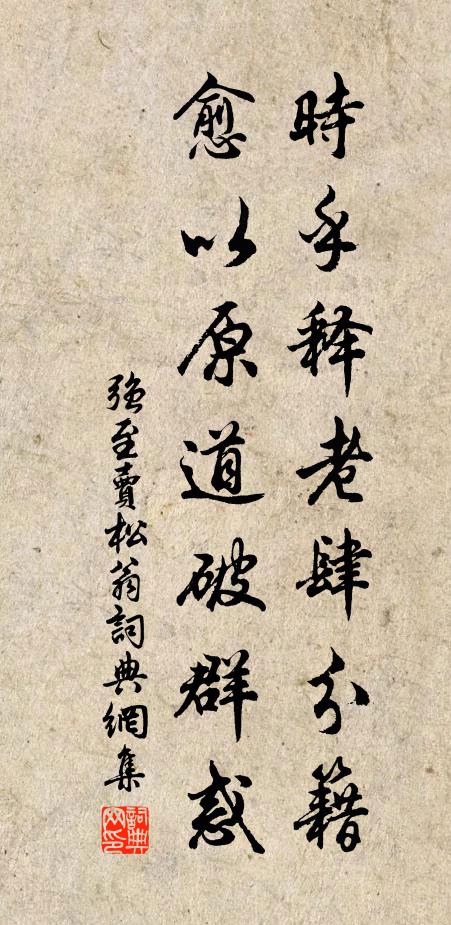 時乎释老肆分籍
愈以原道破群惑
强至賣松翁詞典網集
詞典网印